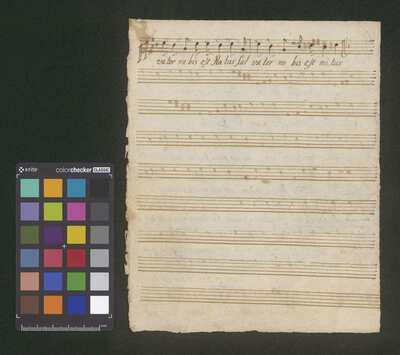 va ter no bis est Na tus sal va ter no bis est na tus
x-rite colorchecker CLASSIC